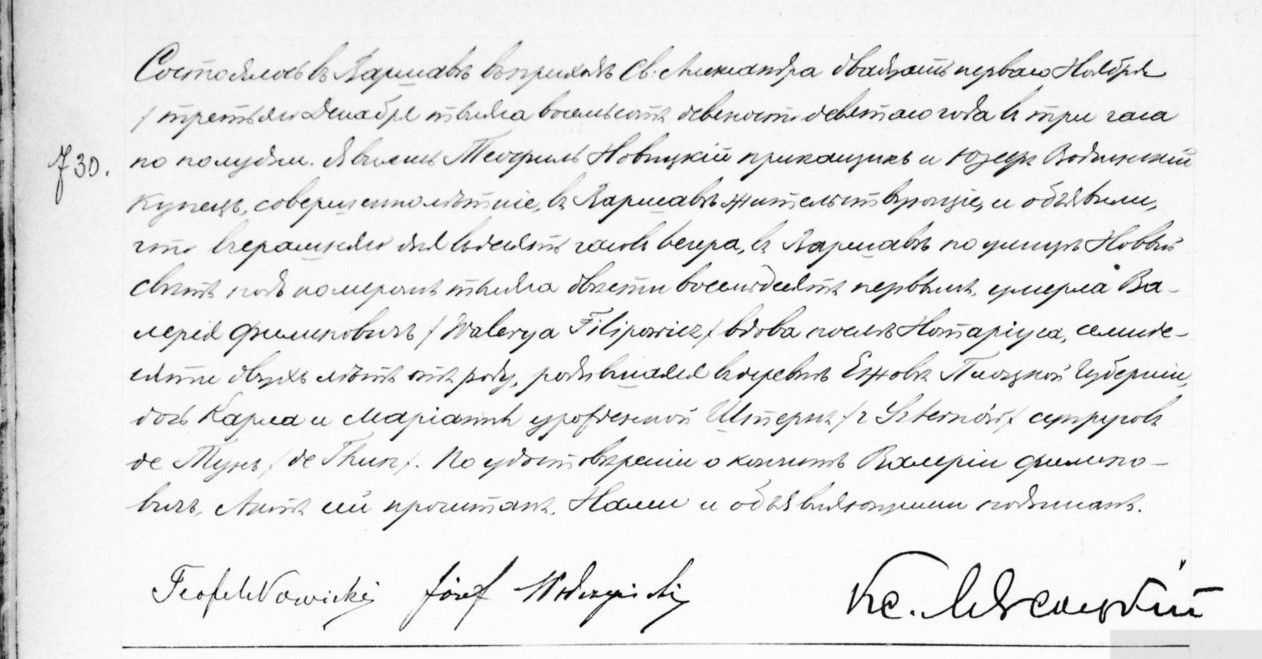 Состоялось въ Варшавѣ въ приходѣ Св. Александра двадцать перваго Ноября
/ третьяго Декабря тысяча восемьсотъ девяносто девятаго года въ три часа
730. по полудни. Явились Теофиль Новицкій прикащикъ и Юзефъ
Купецъ, совершеннолѣтніе, въ Варшавѣ жительствующіе, и объявили,
что вчерашняго дня въ десять часовъ вечера, въ Варшавѣ по улицѣ Новый
свѣтъ подъ номеромъ тысяча двѣсти восемьдесятъ первымъ, умерла Ва-
лерія Филиповичъ / Walerya Filipowicz / вдова послѣ Нотаріуса, семиде-
сяти двухъ лѣтъ отъ роду, родившаяся въ деревнѣ Ежовѣ Плоцкой Губерніи,
дочь Карла и Маріанны урожденной Штернъ / z Sternów / супруговъ
де Тунъ / de Thun /. По удостовѣреніи о кончинѣ Валеріи Филипо-
вичъ, Актъ сей прочитанъ, Нами и объявляющими подписанъ.
Teofil Nowicki Józef Кс.